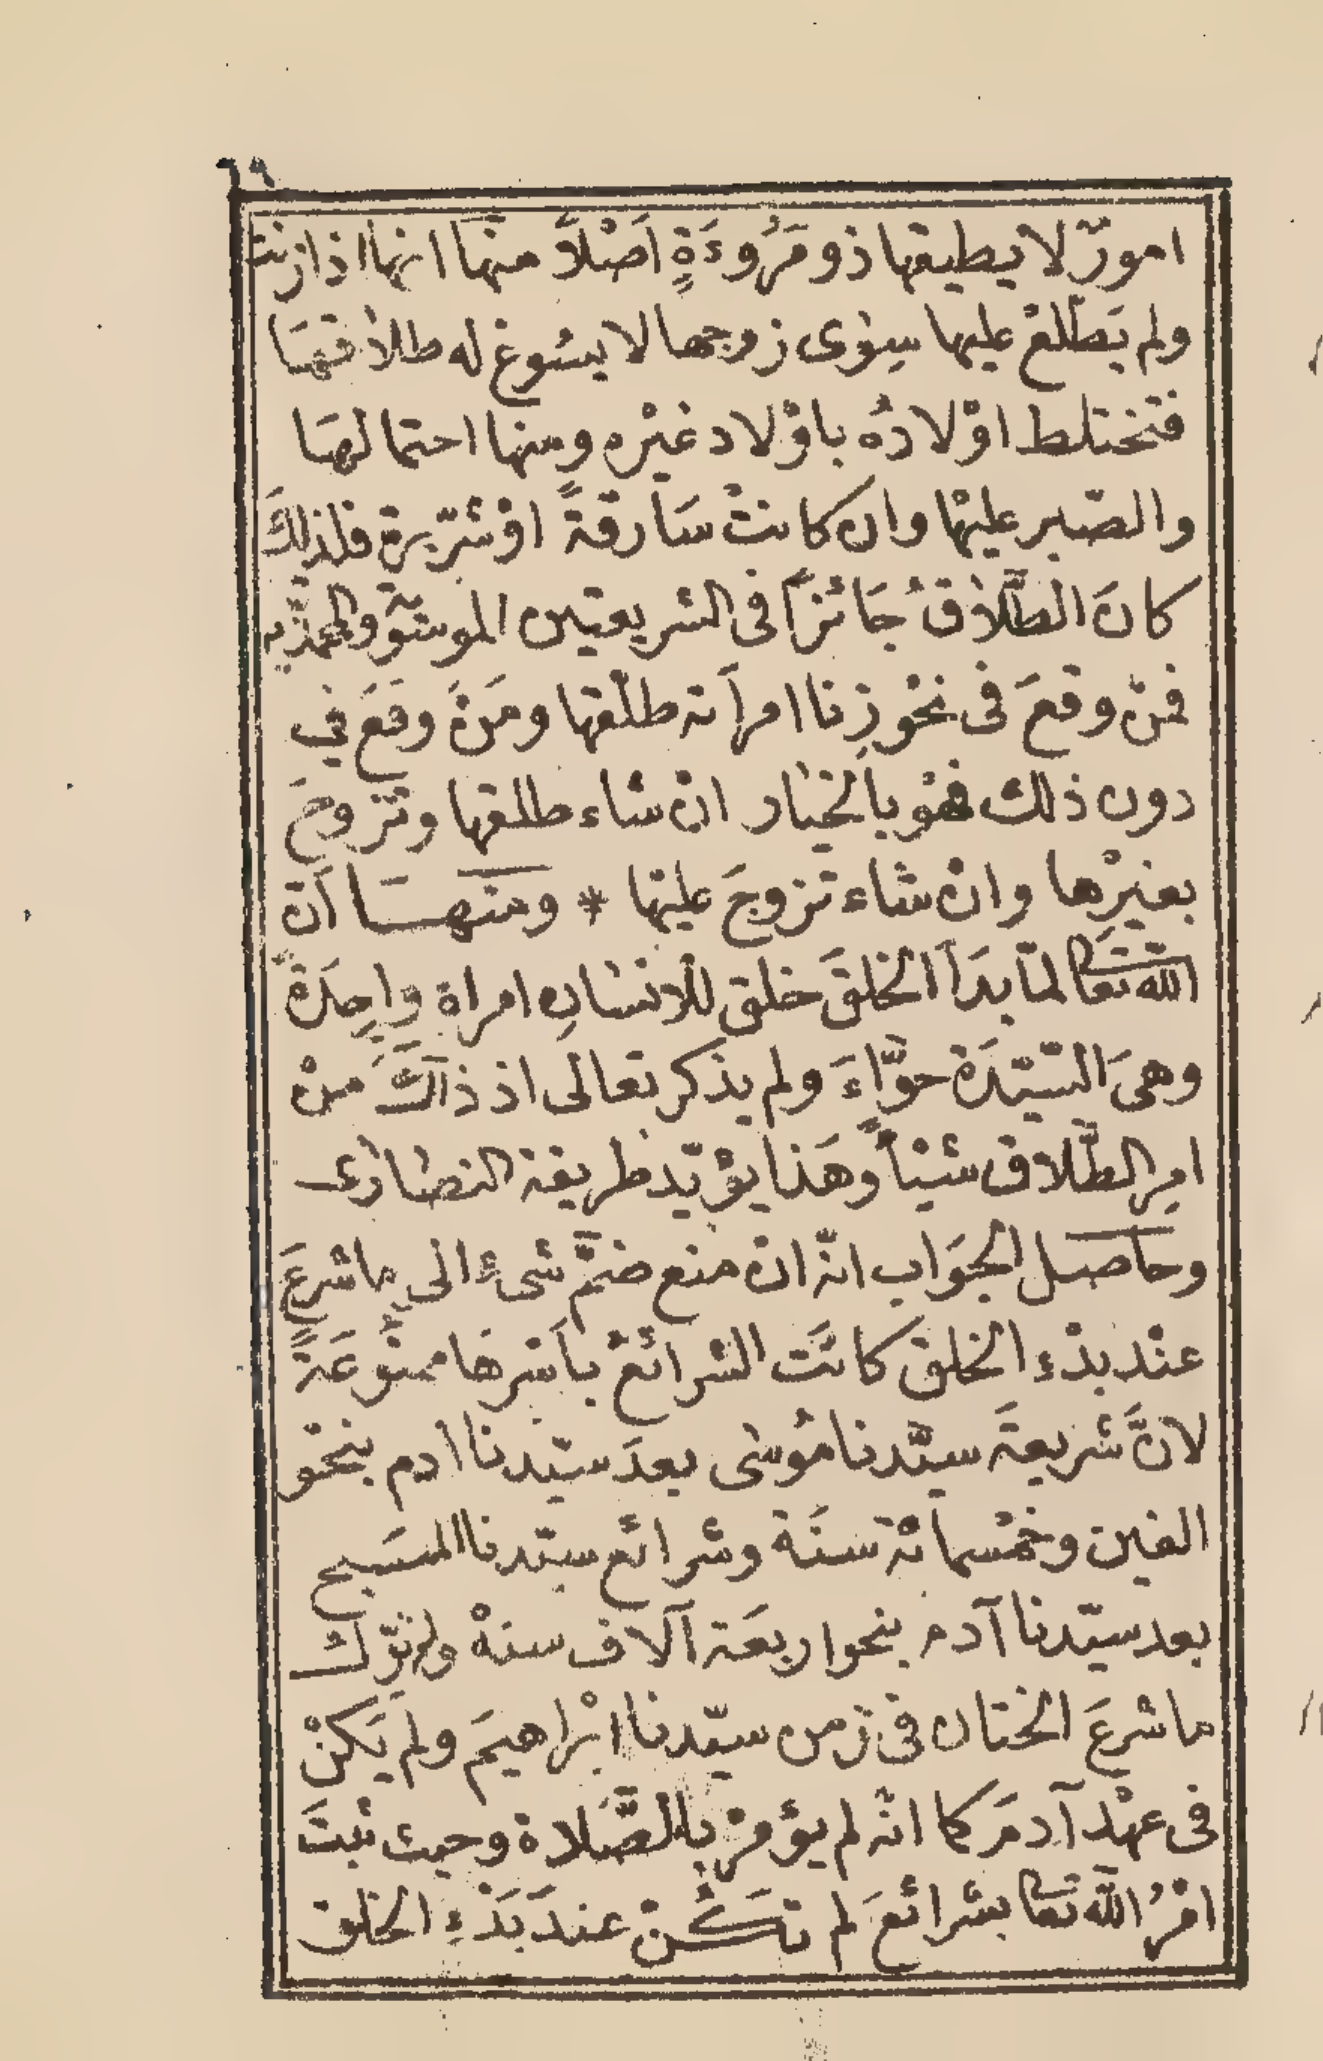 ٦٩
امورٌ لا يطيقها ذو مَرُوءَةٍ اَصْلاً منهَا انها اذا زنت
ولم يَطّلعْ عليها سِوٰى زوجها لا يسُوغ له طلاٰقهَا
فتختلط اوْلادهُ باوْلاد غيْره ومنها احتمالهَا
والصّبر عليْهَا وان كانتْ سَارقةً اوْ شرّيرة فلذلكَ
كانَ الطّلاٰقُ جَائزاً فى الشريعتين الموسَويّة والمحمّديّه
فمنْ وقعَ فى نحْو زِنا امرأته طلّقها ومَنْ وقعَ في
دون ذلك فهْو بالخيٰار انْ شاء طلقها وتَزوجَ
بغيْرِها وانْ شاء تزوجَ عليْها * ومنْهَا أنّ
اللّه تعَالى لمّا بدَأ الخلقَ خلق للاٰنسٰانِ امراة وٰاحِدَةً
وهىَ السّيّدَة حوَّاءَ ولم يذكر تعالى اذ ذَاكَ منْ
امرِ الطّلاق شيئاً وهَذا يؤيّد طريقة النصٰارٰى
وحاصل الجوَاب انّه انْ منع ضمَّ شىءٍ الى ما شرعَ
عنْد بدْءِ الخلق كانَت الشرائعْ باَسْرها ممنْوعَةً
لانَّ شريعةَ سيّدنا مُوسٰى بعدَ سيّدنا اٰدم بنحْو
الفين وخمْسمائة سنَة وشرائع سيّدنا المسَيح
بعد سيّدنا آدم بنحو اربعَة آلاف سنهْ ولم تُرك
ما شرعَ الختان فى زمن سيّدنا ابْراهيمَ ولم يَكنْ
فى عهْد آدمَ كما انّه لم يؤمرْ بالصَّلاة وحيث ثبتَ
امْرُ اللّه تعَالى بشرائعَ لم تكُنْ عندَ بَدْءِ الخلق